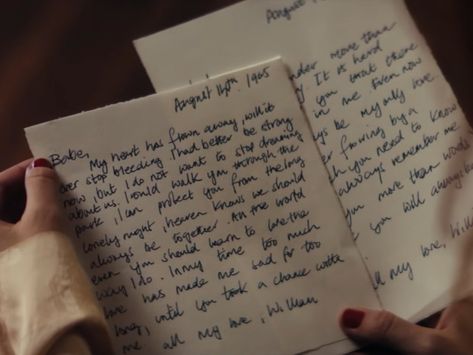 August 14th, 1965
Babe,
My heart has flown away, will it
ever stop bleeding I had better be strong
now, but I do not want to stop dreaming
about us. I could walk you through the
park, I can protect you from the long
lonely night, heaven knows we should
always be together. All the world
even you should learn to love the
way I do. In my time too much
love has made me sad for too
long, until you took a chance with
me. all my love, William
August
more than
It is hard
you that there
in me Even now
be my only love
flowing by a
you need to know
always remember me
you more than words
you will always be
all my love, Will